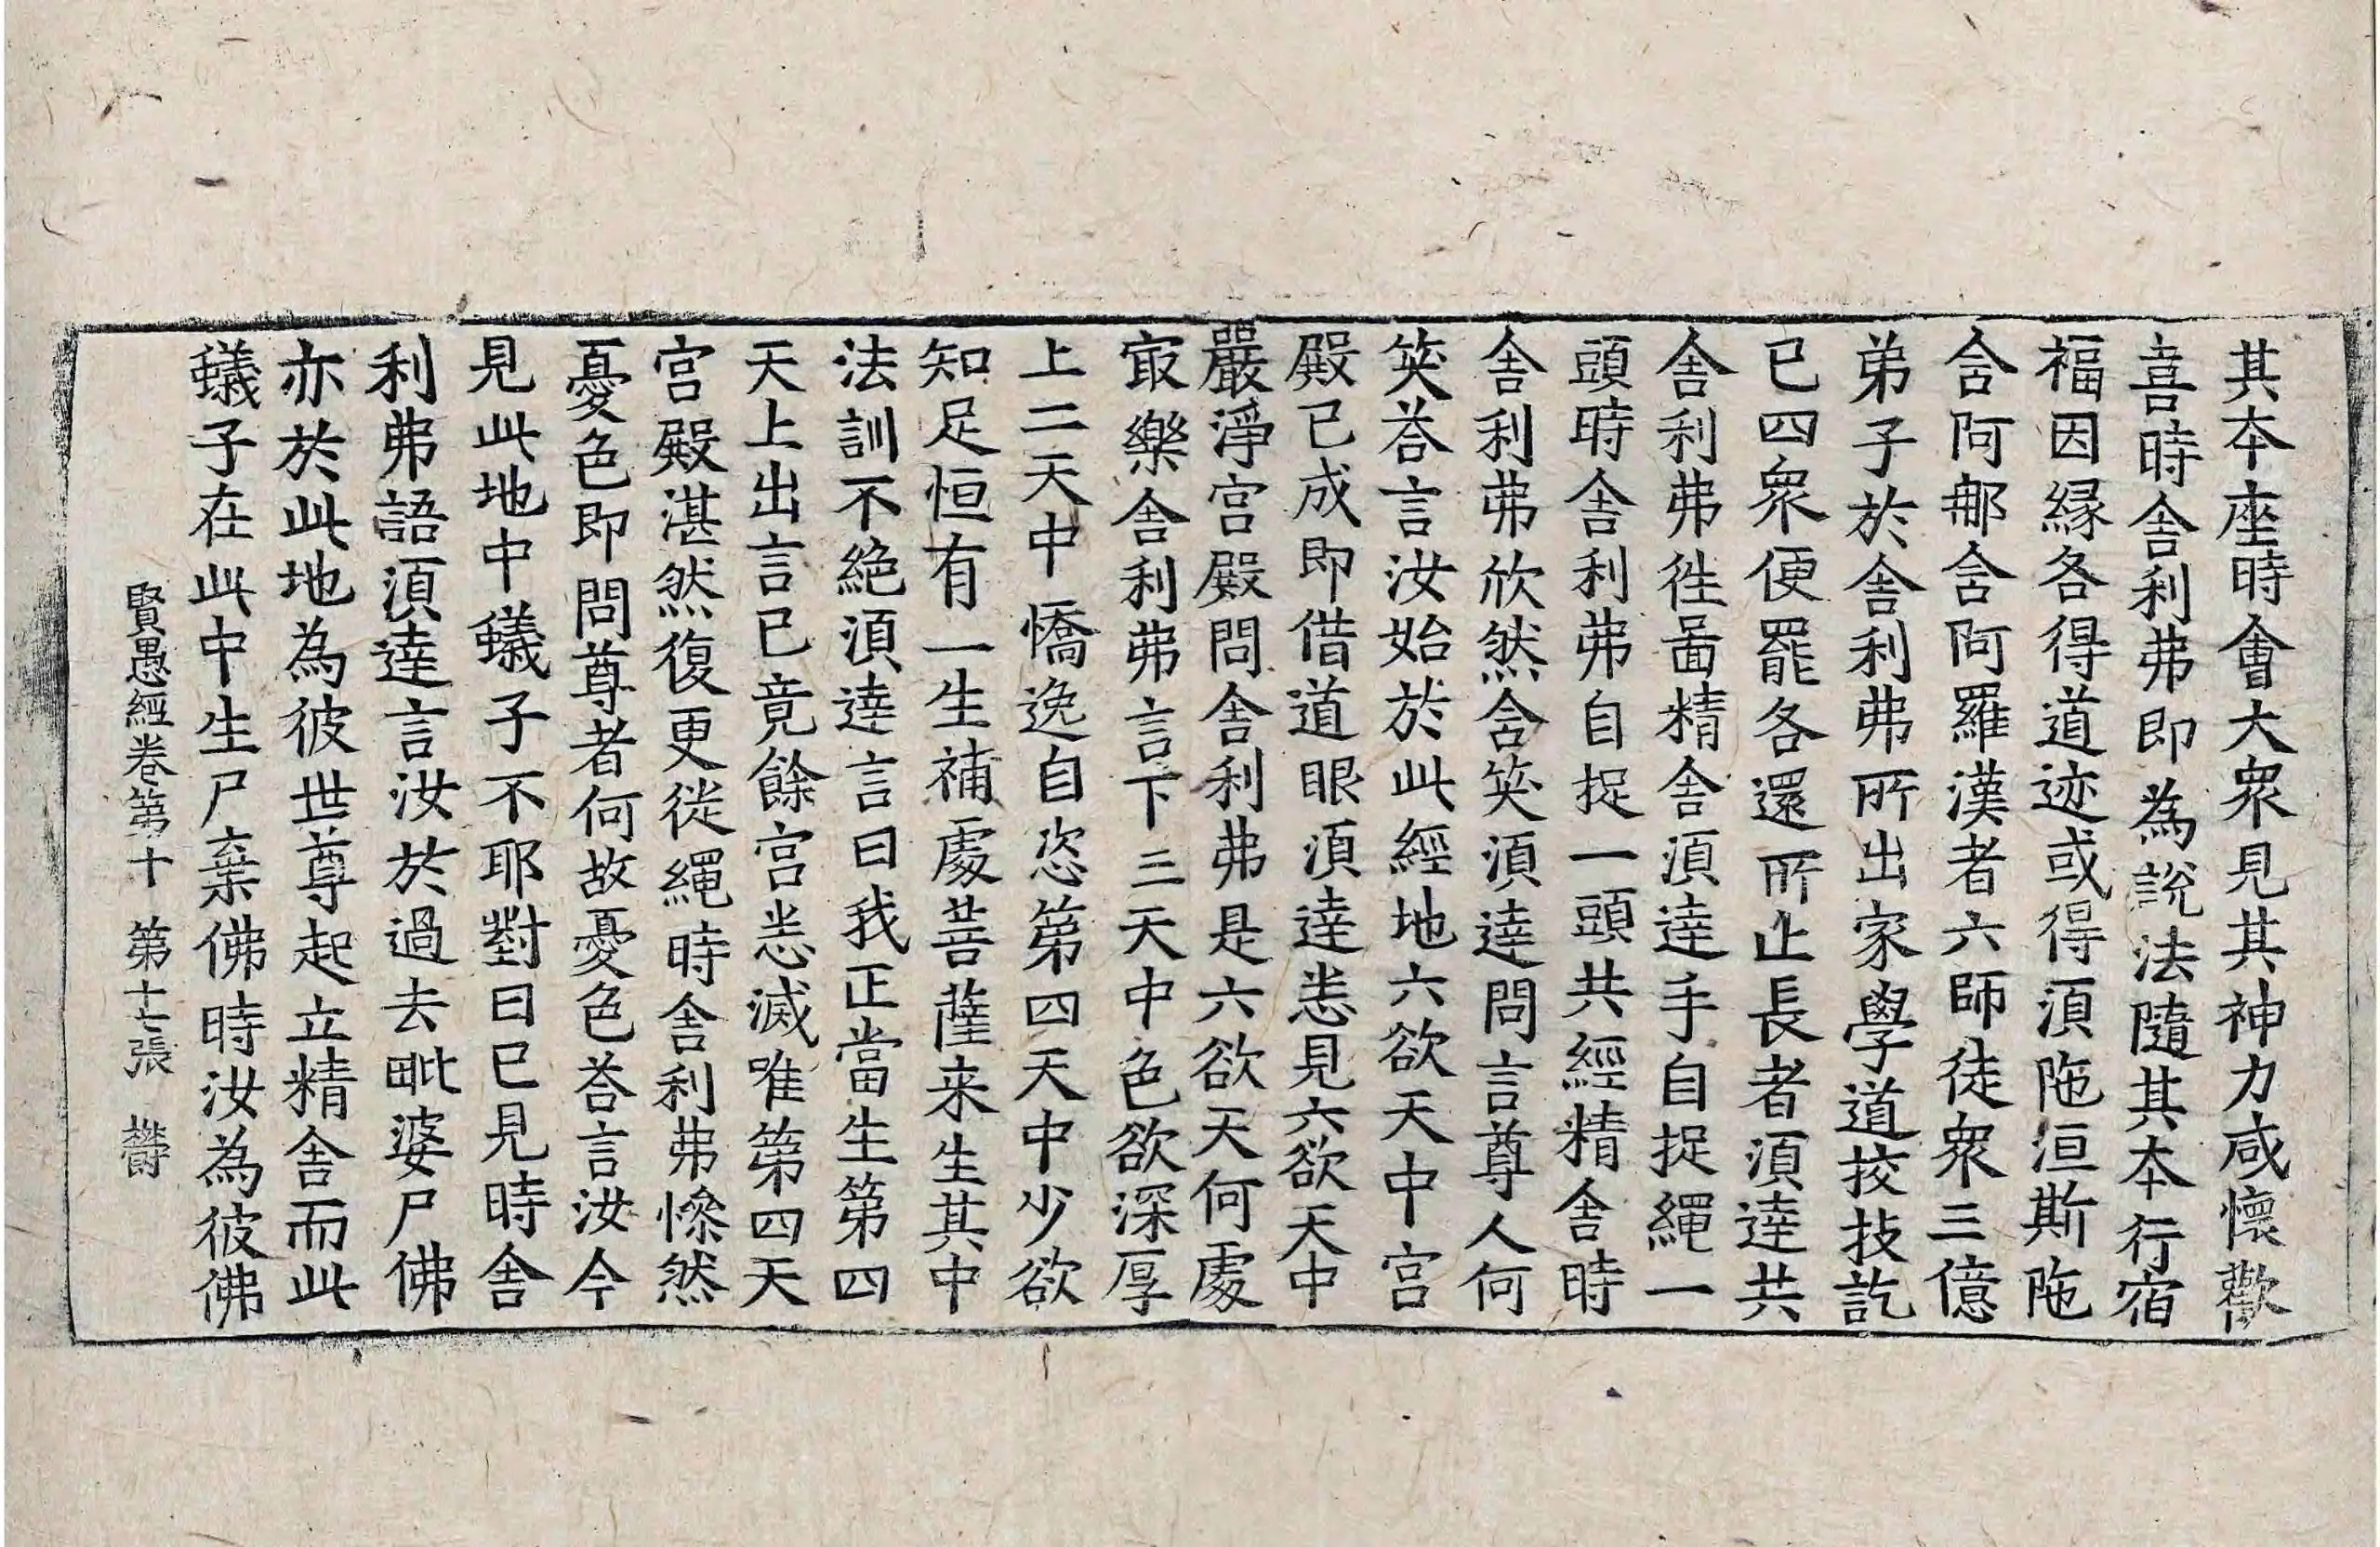 其本座時會大衆見其神力咸懷歡
喜時舍利弗即為說法隨其本行宿
福因縁各得道迹或得湏陁洹斯陁
含阿那含阿羅漢者六師徒衆三億
弟子於舍利弗所出家學道挍技訖
已四衆便罷各還所止長者湏達共
舍利弗徃啚精舍湏達手自捉繩一
頭時舍利弗自捉一頭共經精舍時
舍利弗欣然含笑湏達問言尊人何
笑荅言汝始於此經地六欲天中宮
殿已成即借道眼湏達悉見六欲天中
嚴淨宮殿問舍利弗是六欲天何處
㝡樂舍利弗言下三天中色欲深厚
上二天中憍逸自恣第四天中少欲
知足恒有一生補處菩薩来生其中
法訓不絶湏達言曰我正當生第四
天上出言已竟餘宮悉滅唯第四天
宮殿湛然復更從繩時舍利弗慘然
憂色即問尊者何故憂色荅言汝今
見此地中蟻子不耶對曰已見時舍
利弗語湏達言汝於過去毗婆尸佛
亦於此地為彼世尊起立精舍而此
蟻子在此中生尸棄佛時汝為彼佛
賢愚經卷第十 第十七張 欝